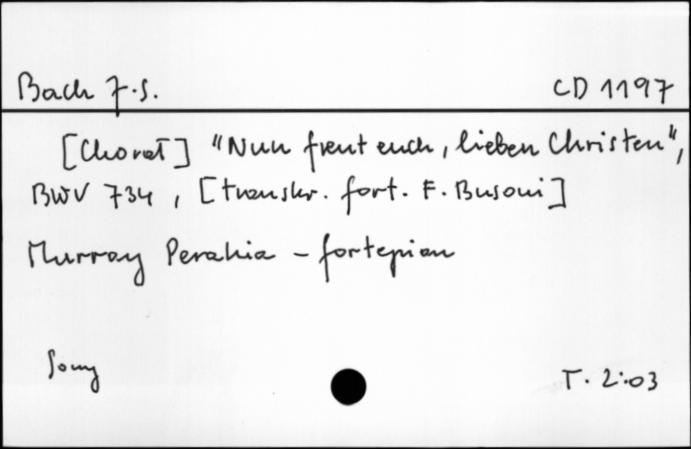 Bach J.S. CD 1197
[Chorał] "Nun freut euch, lieben Christen",
BWV 734, [transkr. fort. F. Busoni]
Murray Perahia - fortepian
Sony T. 2:03